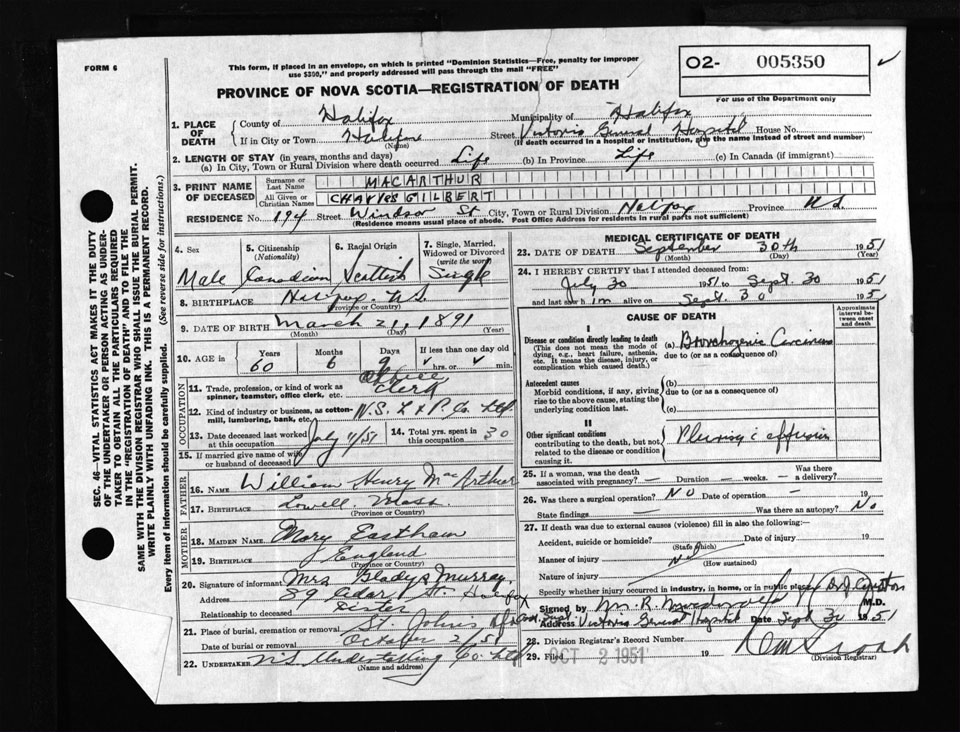 FORM 6
This form, if placed in an envelope, on which is printed "Dominion Statistics—Free, penalty for improper
use $300," and properly addressed will pass through the mail "FREE"
O2- 005350
For use of the Department only
PROVINCE OF NOVA SCOTIA—REGISTRATION OF DEATH
1. PLACE OF DEATH
County of Halifax Municipality of Halifax
If in City or Town Halifax (Name) Street Victoria General Hospital House No.
(If death occurred in a hospital or institution, give the name instead of street and number)
2. LENGTH OF STAY (in years, months and days)
(a) In City, Town or Rural Division where death occurred Life (b) In Province Life (c) In Canada (if immigrant)
3. PRINT NAME OF DECEASED
Surname or Last Name MACARTHUR
All Given or Christian Names CHARLES GILBERT
RESIDENCE No. 194 Street Windsor St City, Town or Rural Division Halifax Province N.S.
(Residence means usual place of abode. Post Office Address for residents in rural parts not sufficient)
SEC. 46—VITAL STATISTICS ACT MAKES IT THE DUTY
OF THE UNDERTAKER OR PERSON ACTING AS UNDER-
TAKER TO OBTAIN ALL THE PARTICULARS REQUIRED
IN THE "REGISTRATION OF DEATH" AND TO FILE THE
SAME WITH THE DIVISION REGISTRAR WHO SHALL ISSUE THE BURIAL PERMIT.
WRITE PLAINLY WITH UNFADING INK. THIS IS A PERMANENT RECORD.
Every item of information should be carefully supplied. (See reverse side for instructions.)
4. Sex Male
5. Citizenship (Nationality) Canadian
6. Racial Origin Scottish
7. Single, Married, Widowed or Divorced (write the word) Single
8. BIRTHPLACE Halifax. N.S. (Province or Country)
9. DATE OF BIRTH March 21, 1891 (Month) (Day) (Year)
10. AGE in Years 60 Months 6 Days 9 If less than one day old hrs. or min.
OCCUPATION
11. Trade, profession, or kind of work as spinner, teamster, office clerk, etc. Office Clerk
12. Kind of industry or business, as cotton-mill, lumbering, bank, etc. N.S. L & P. Co. Ltd.
13. Date deceased last worked at this occupation July 11/51
14. Total yrs. spent in this occupation 30
15. If married give name of wife or husband of deceased
FATHER
16. NAME William Henry MacArthur
17. BIRTHPLACE Lowell Mass. (Province or Country)
MOTHER
18. MAIDEN NAME Mary Eastham
19. BIRTHPLACE England (Province or Country)
20. Signature of informant Mrs Gladys Murray.
Address 89 Cedar St. Halifax
Relationship to deceased Sister
21. Place of burial, cremation or removal St. John's
Date of burial or removal October 2/51
22. UNDERTAKER N.S. Undertaking Co. Ltd
(Name and address)
MEDICAL CERTIFICATE OF DEATH
23. DATE OF DEATH September 30th 1951
(Month) (Day) (Year)
24. I HEREBY CERTIFY that I attended deceased from
July 30 1951 to Sept. 30 1951
and last saw him alive on Sept. 30 195
CAUSE OF DEATH
Approximate interval between onset and death
I
Disease or condition directly leading to death
(This does not mean the mode of dying, e.g., heart failure, asthenia, etc. It means the disease, injury, or complication which caused death.)
(a) Bronchogenic Carcinoma
due to (or as a consequence of)
Antecedent causes
Morbid conditions, if any, giving rise to the above cause, stating the underlying condition last.
(b)
due to (or as a consequence of)
(c)
II
Other significant conditions
contributing to the death, but not related to the disease or condition causing it.
Pleurisy c effusion
25. If a woman, was the death associated with pregnancy? — Duration — weeks. — Was there a delivery?
26. Was there a surgical operation? NO Date of operation — 19
State findings — Was there an autopsy? No
27. If death was due to external causes (violence) fill in also the following:-
Accident, suicide or homicide? (State which) Date of injury 19
Manner of injury (How sustained)
Nature of injury
Specify whether injury occurred in industry, in home, or in public place
Signed by M. R. M.D.
Address Victoria General Hospital Date Sept 30 1951
28. Division Registrar's Record Number
29. Filed OCT 2 1951 19
(Division Registrar)